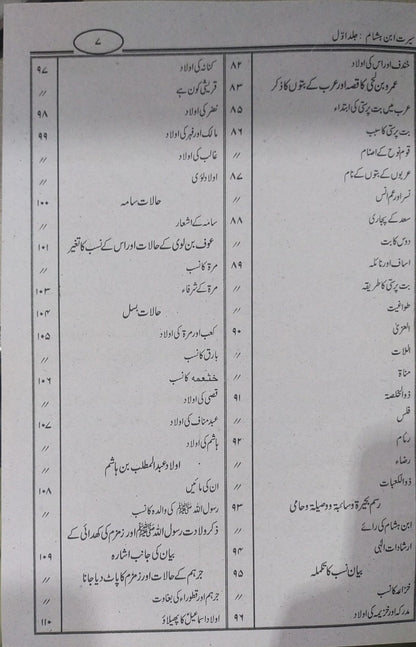 سیرت ابن ہشام : جلد اوّل
۷
خندف اور اس کی اولاد ۸۲
عمرو بن لحی کا قصہ اور عرب کے بتوں کا ذکر ۸۳
عرب میں بت پرستی کی ابتداء ۸۵
بت پرستی کا سبب ۸۶
قوم نوح کے اصنام //
عربوں کے بتوں کے نام ۸۷
نسر اور عم انس //
سعد کے پجاری ۸۸
دوس کا بت //
اساف اور نائلہ ۸۹
بت پرستی کا طریقہ //
طواغیت //
العزیٰ ۹۰
اللات //
مناۃ //
ذوالخلصۃ ۹۱
فلس //
رئام ۹۲
رضاء //
ذوالکعبات //
رسم بحیرۃ و سائبۃ و وصیلۃ و حامی ۹۳
ابن ہشام کی رائے //
ارشادات الٰہی ۹۴
بیان نسب کا تکملہ ۹۵
خزاعہ کا نسب //
مدرکہ اور خزیمہ کی اولاد ۹۶
کنانہ کی اولاد ۹۷
قریش کون ہے //
نضر کی اولاد ۹۸
مالک اور فہر کی اولاد ۹۹
غالب کی اولاد //
اولاد لؤی //
حالات سامہ ۱۰۰
سامہ کے اشعار //
عوف بن لوی کے حالات اور اس کے نسب کا تغیر ۱۰۱
مرۃ کا نسب //
مرۃ کے شرفاء ۱۰۳
حالات بسل ۱۰۴
کعب اور مرۃ کی اولاد ۱۰۵
بارق کا نسب //
خثعمہ کا نسب ۱۰۶
قصی کی اولاد //
عبد مناف کی اولاد ۱۰۷
ہاشم کی اولاد //
اولاد عبدالمطلب بن ہاشم //
ان کی مائیں ۱۰۸
رسول اللہ ﷺ کی والدہ کا نسب //
ذکر ولادت رسول اللہ ﷺ اور زمزم کی کھدائی کے
بیان کی جانب اشارہ ۱۰۹
جرہم کے حالات اور زمزم کا پاٹ دیا جانا //
جرہم اور قطوراء کی بغاوت //
اولاد اسماعیل کا پھیلاؤ ۱۱۰